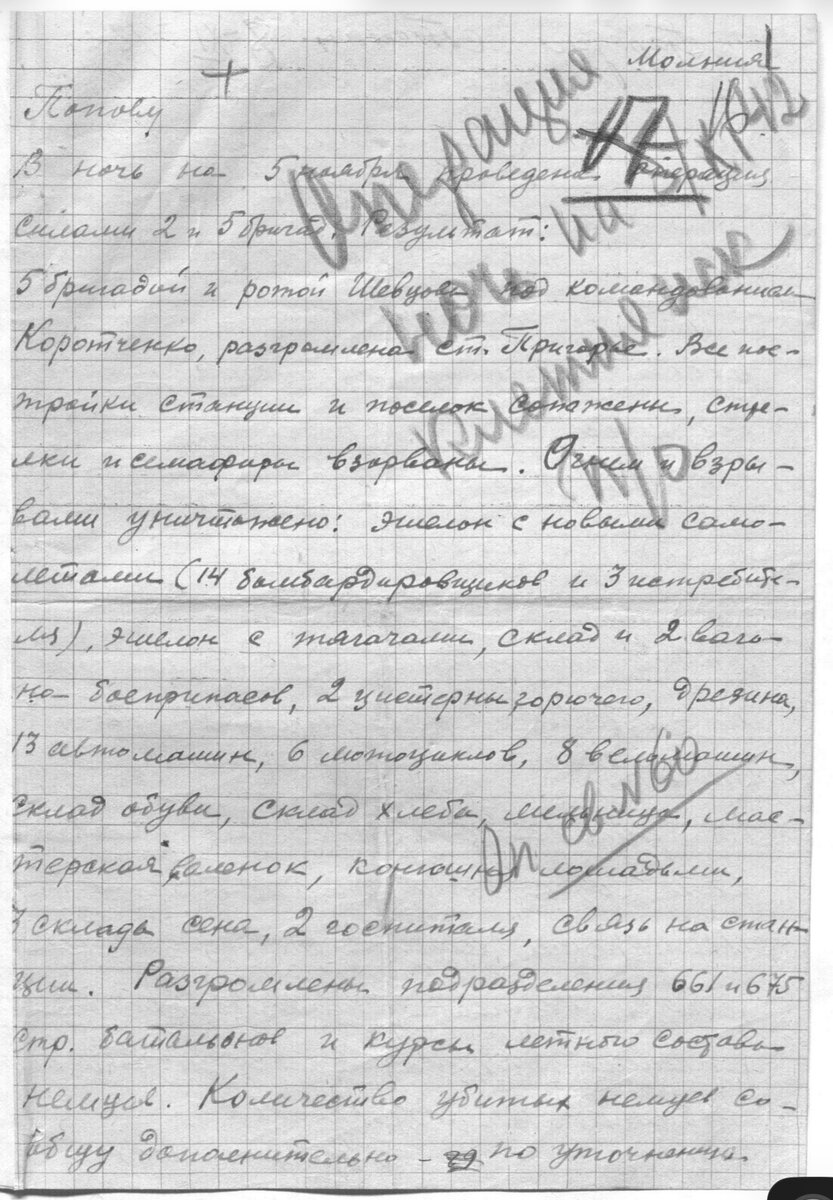 Молния
Попову
В ночь на 5 ноября проведена операция
силами 2 и 5 бригад. Результат:
5 бригадой и ротой Шевцова под командованием
Коротченко, разгромлена ст. Пригорье. Все пос-
тройки станции и поселок сожжены, стре-
лки и семафоры взорваны. Огнем и взры-
вами уничтожено: эшелон с новыми само-
летами (14 бомбардировщиков и 3 истребите-
ля), эшелон с тягачами, склад и 2 ваго-
на боеприпасов, 2 цистерны горючего, дрезина,
13 автомашин, 6 мотоциклов, 8 веломашин,
склад обуви, склад хлеба, мельница, мас-
терская валенок, конюшня с лошадьми,
3 склада сена, 2 госпиталя, связь на стан-
ции. Разгромлены подразделения 661 и 675
стр. батальонов и курсы летного состава
немцев. Количество убитых немцев со-
общу дополнительно - по уточнении.
Операция
ночь на 5/XI 42
17
Оп св №60